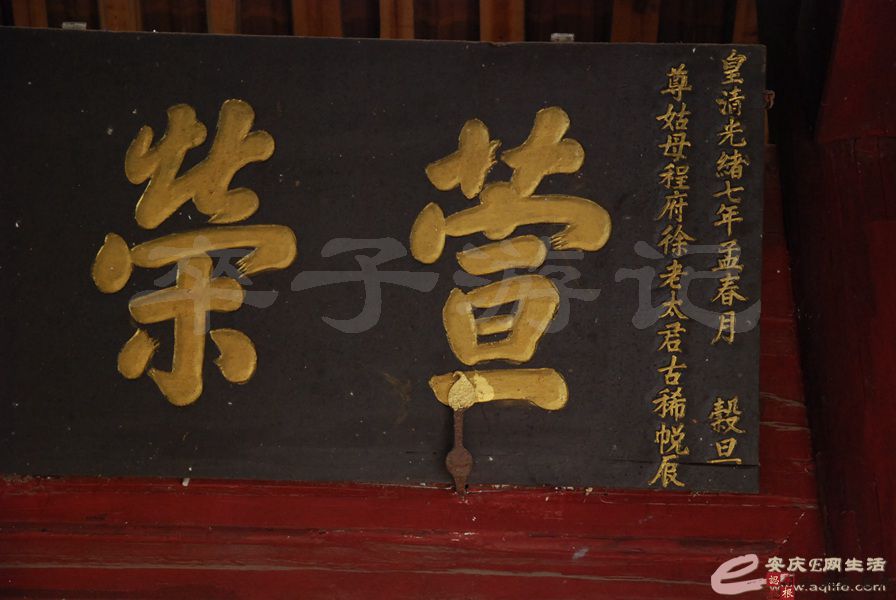 皇清光緒七年孟春月 穀旦
尊姑母程府徐老太君古稀帨辰
萱榮
來子游记
安庆E网生活
www.aqlife.com